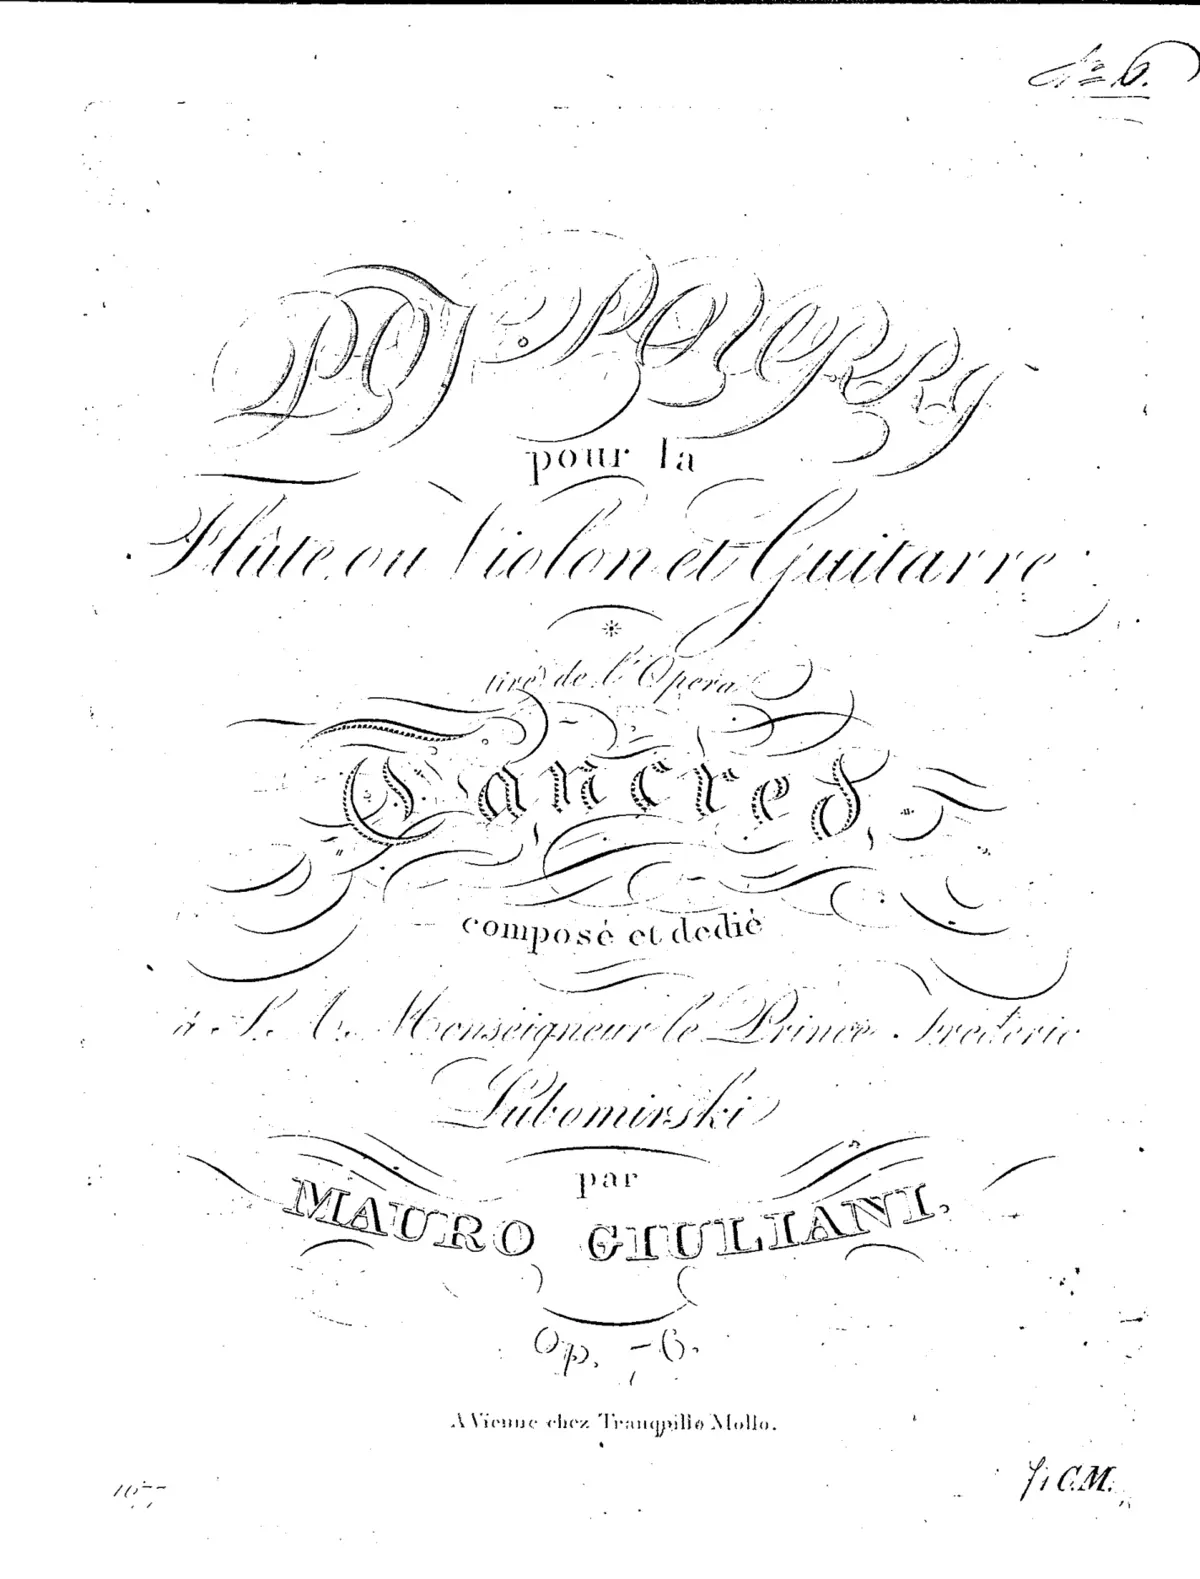 POT-POUERRY
pour la
Flûte ou Violon et Guitarre
tiré de l'Opera
Tancred,
composé et dedié
à S. A. Monseigneur le Prince Frédéric
Lubomirski
par
MAURO GIULIANI.
Op.
A Vienne chez Tranquillo Mollo.
C.M.